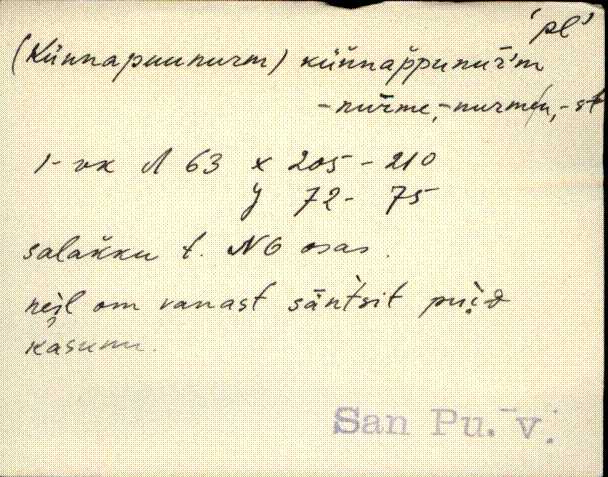 'pl'
(Künnapuunurm) kün̆nap̆punur̆'m
-nur̆me, -nurmen, -st
1- vk Л 63 x 205 - 210
y 72 - 75
salak̆ku t. N6 osas.
neil om vanast säntsit puid
kasunu.
San Pu. - v.